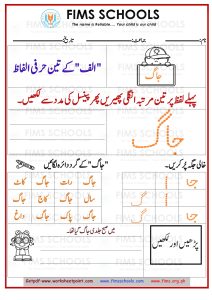 FIMS SCHOOLS
The name is Reliable... Your child is our child
نام: جماعت: تاریخ:
"الف" کے تین حرفی الفاظ
جاگ
پہلے لفظ پر تین مرتبہ انگلی پھیریں پھر پینسل کی مدد سے لکھیں۔
جاگ
خالی جگہ پر کریں۔
"جاگ" کے گرد دائرہ لگائیں۔
جا
ا گ
جاگ رات جاگ کات
سال جاگ کاج جاگ
جاگ پاک جاگ داغ
میں صبح جلدی جاگ گیا تھا۔
پڑھیں اور لکھیں
Getpdf www.worksheetpoint.com www.fimsschools.com www.fims.org.pk